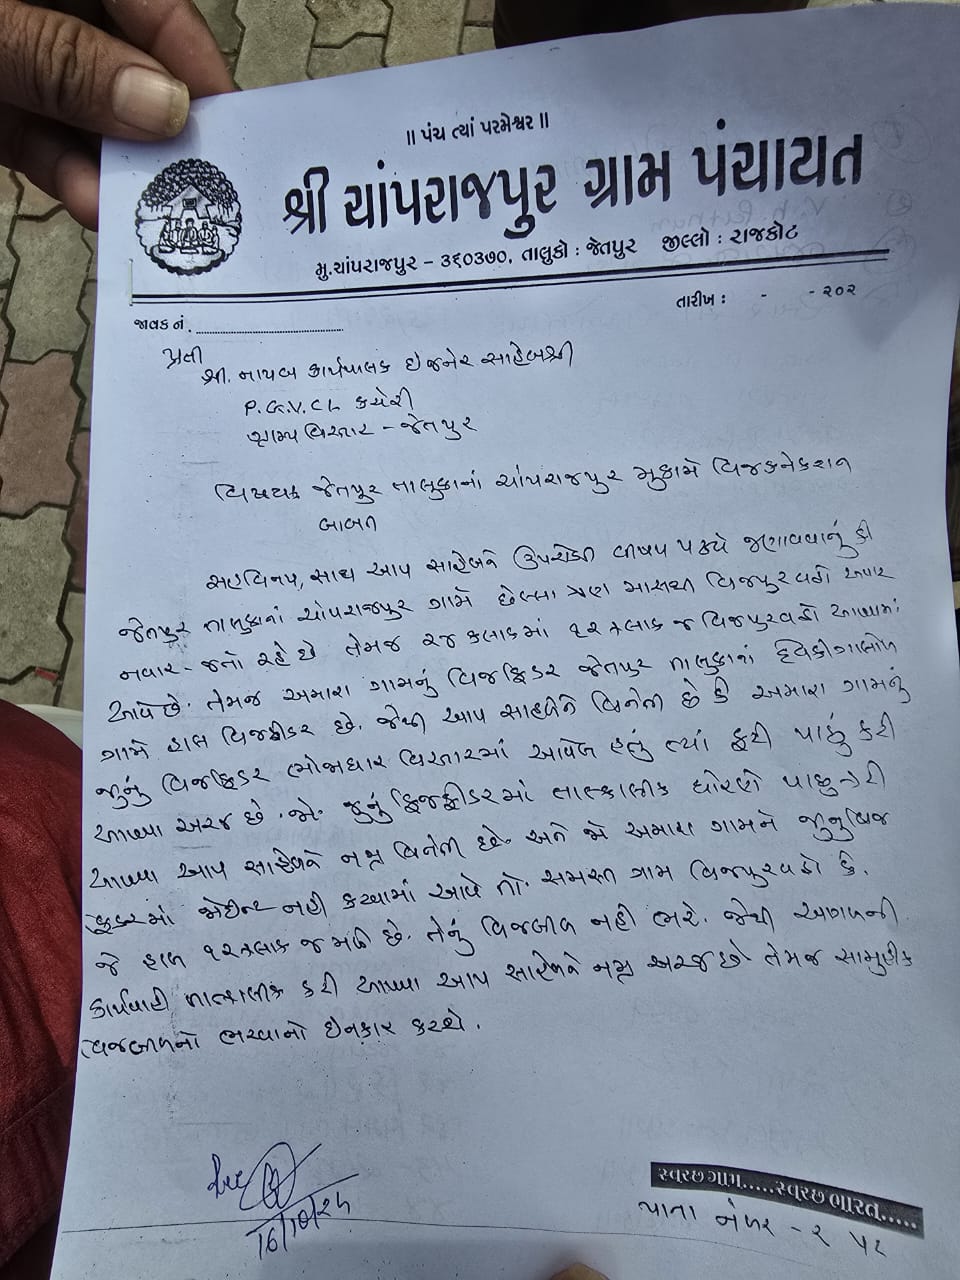 ॥ પંચ ત્યાં પરમેશ્વર ॥
શ્રી ચાંપરાજપુર ગ્રામ પંચાયત
મુ.ચાંપરાજપુર - ૩૬૦૩૭૦, તાલુકો : જેતપુર જીલ્લો : રાજકોટ
જાવક નં. તારીખ : - - ૨૦૨
પ્રતી
શ્રી. નાયબ કાર્યપાલક ઈજનેર સાહેબશ્રી
P.G.V.CL કચેરી
ગ્રામ્ય વિસ્તાર - જેતપુર
જેતપુર તાલુકાનાં ચાંપરાજપુર મુકામે વિજકનેકશન
બાબત
સવિનય, સાથ આપ સાહેબને ઉપરોક્ત વીષય પત્વે જણાવવાનું કી
જેતપુર તાલુકાનાં ચાંપરાજપુર ગામે છેલ્લા ત્રણ માસથી વિજપુરવઠો અવાર
નવાર - જતો રહે છે તેમજ ૨૪ કલાકમાં ૧૨ કલાક જ વિજપુરવઠો આપવામાં
આવે છે. તેમજ અમારા ગામનું વિજફિડર જેતપુર તાલુકાનાં
ગામે હાલ વિજફીડર છે. જેથી આપ સાહેબને વિનંતી છે કી અમારા ગામનું
જુનું વિજફિડર ભોજાધાર વિસ્તારમાં આવેલ હતું ત્યાં ફરી પાછું કરી
આપવા અરજ છે. જો. જુનું વિજફીડરમાં તાત્કાલીક ધોરણે પાછું કરી
આપવા આપ સાહેબને નમ્ર વિનંતી છે. અને જો અમારા ગામને જુનુ વિજ
ફીડરમાં જોઈન્ટ નહી કરવામાં આવે તો. સમસ્ત ગામ વિજપુરવઠો કે.
જે હાલ ૧૨ કલાક જ મળે છે. તેનું વિજબીલ નહી ભરે. જેથી આગળની
કાર્યવાહી તાત્કાલીક કરી આપવા આપ સાહેબને નમ્ર અરજ છે તેમજ સામુહીક
વિજબીલનો ભરવાનો ઈનકાર કરશે.
16/10/24
સ્વચ્છ ગામ.....સ્વચ્છ ભારત.....
પાના નંબર - ૨ પર